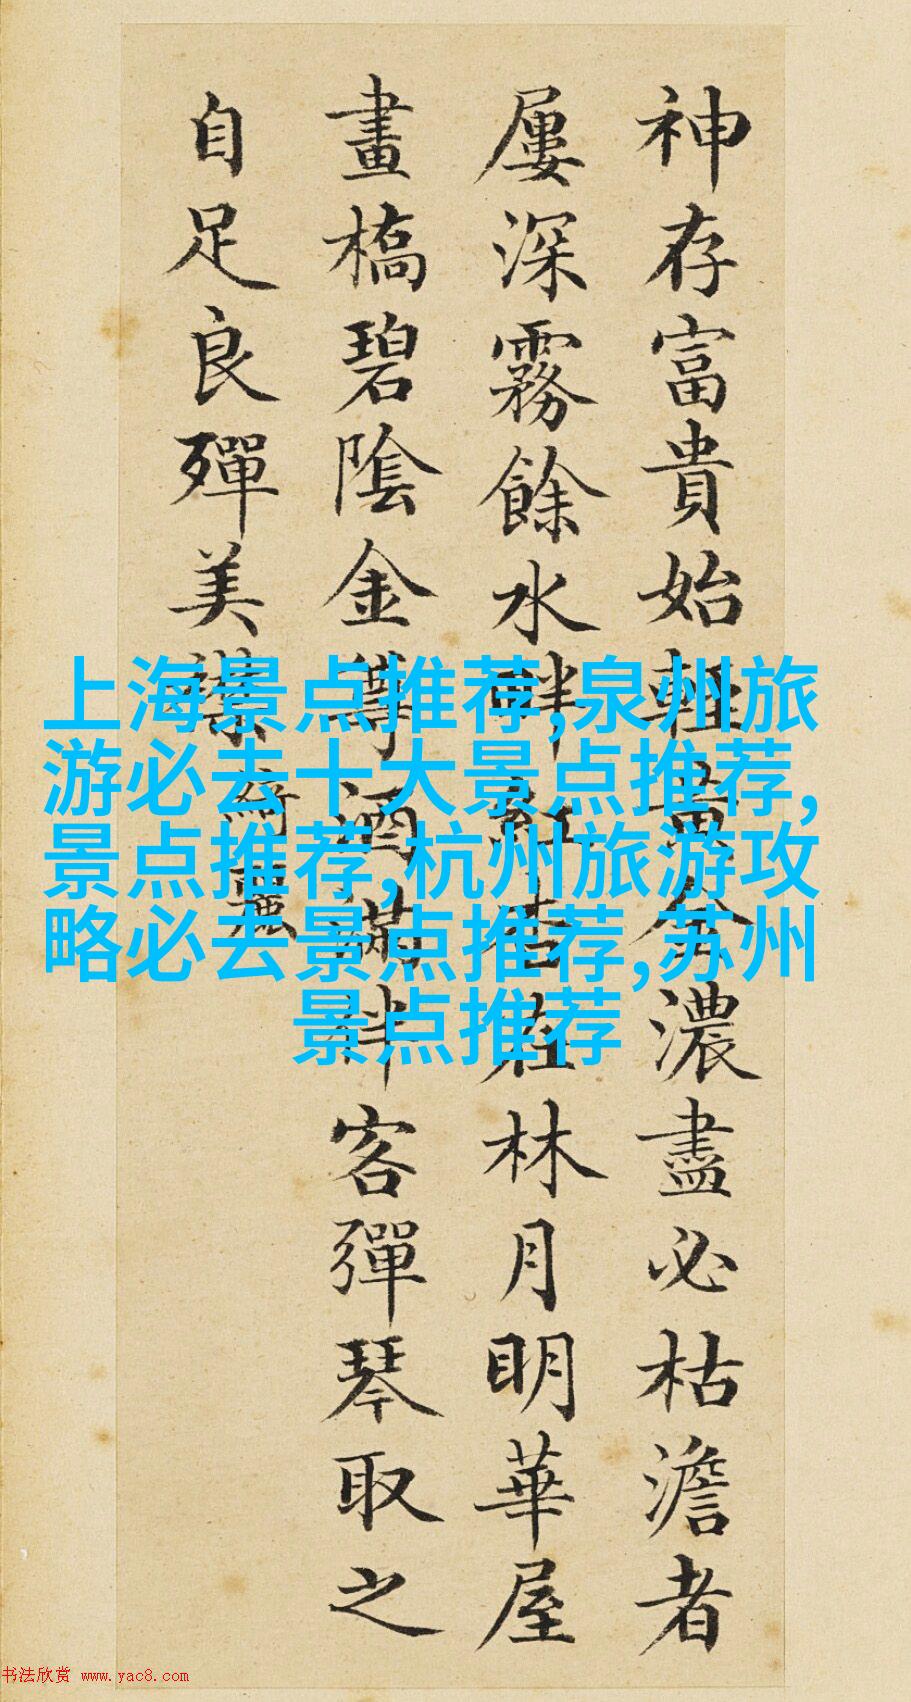 神存富貴始輕黃金濃盡必枯澹者
屢深霧餘水畔紅杏在林月明華屋
畫橋碧陰金罇酒滿伴客彈琴取之
自足良殫美襟
綺麗
上海景点推荐,泉州旅
游必去十大景点推荐,
景点推荐,杭州旅游攻
略必去景点推荐,苏州
景点推荐
书法欣赏 www.yac8.com